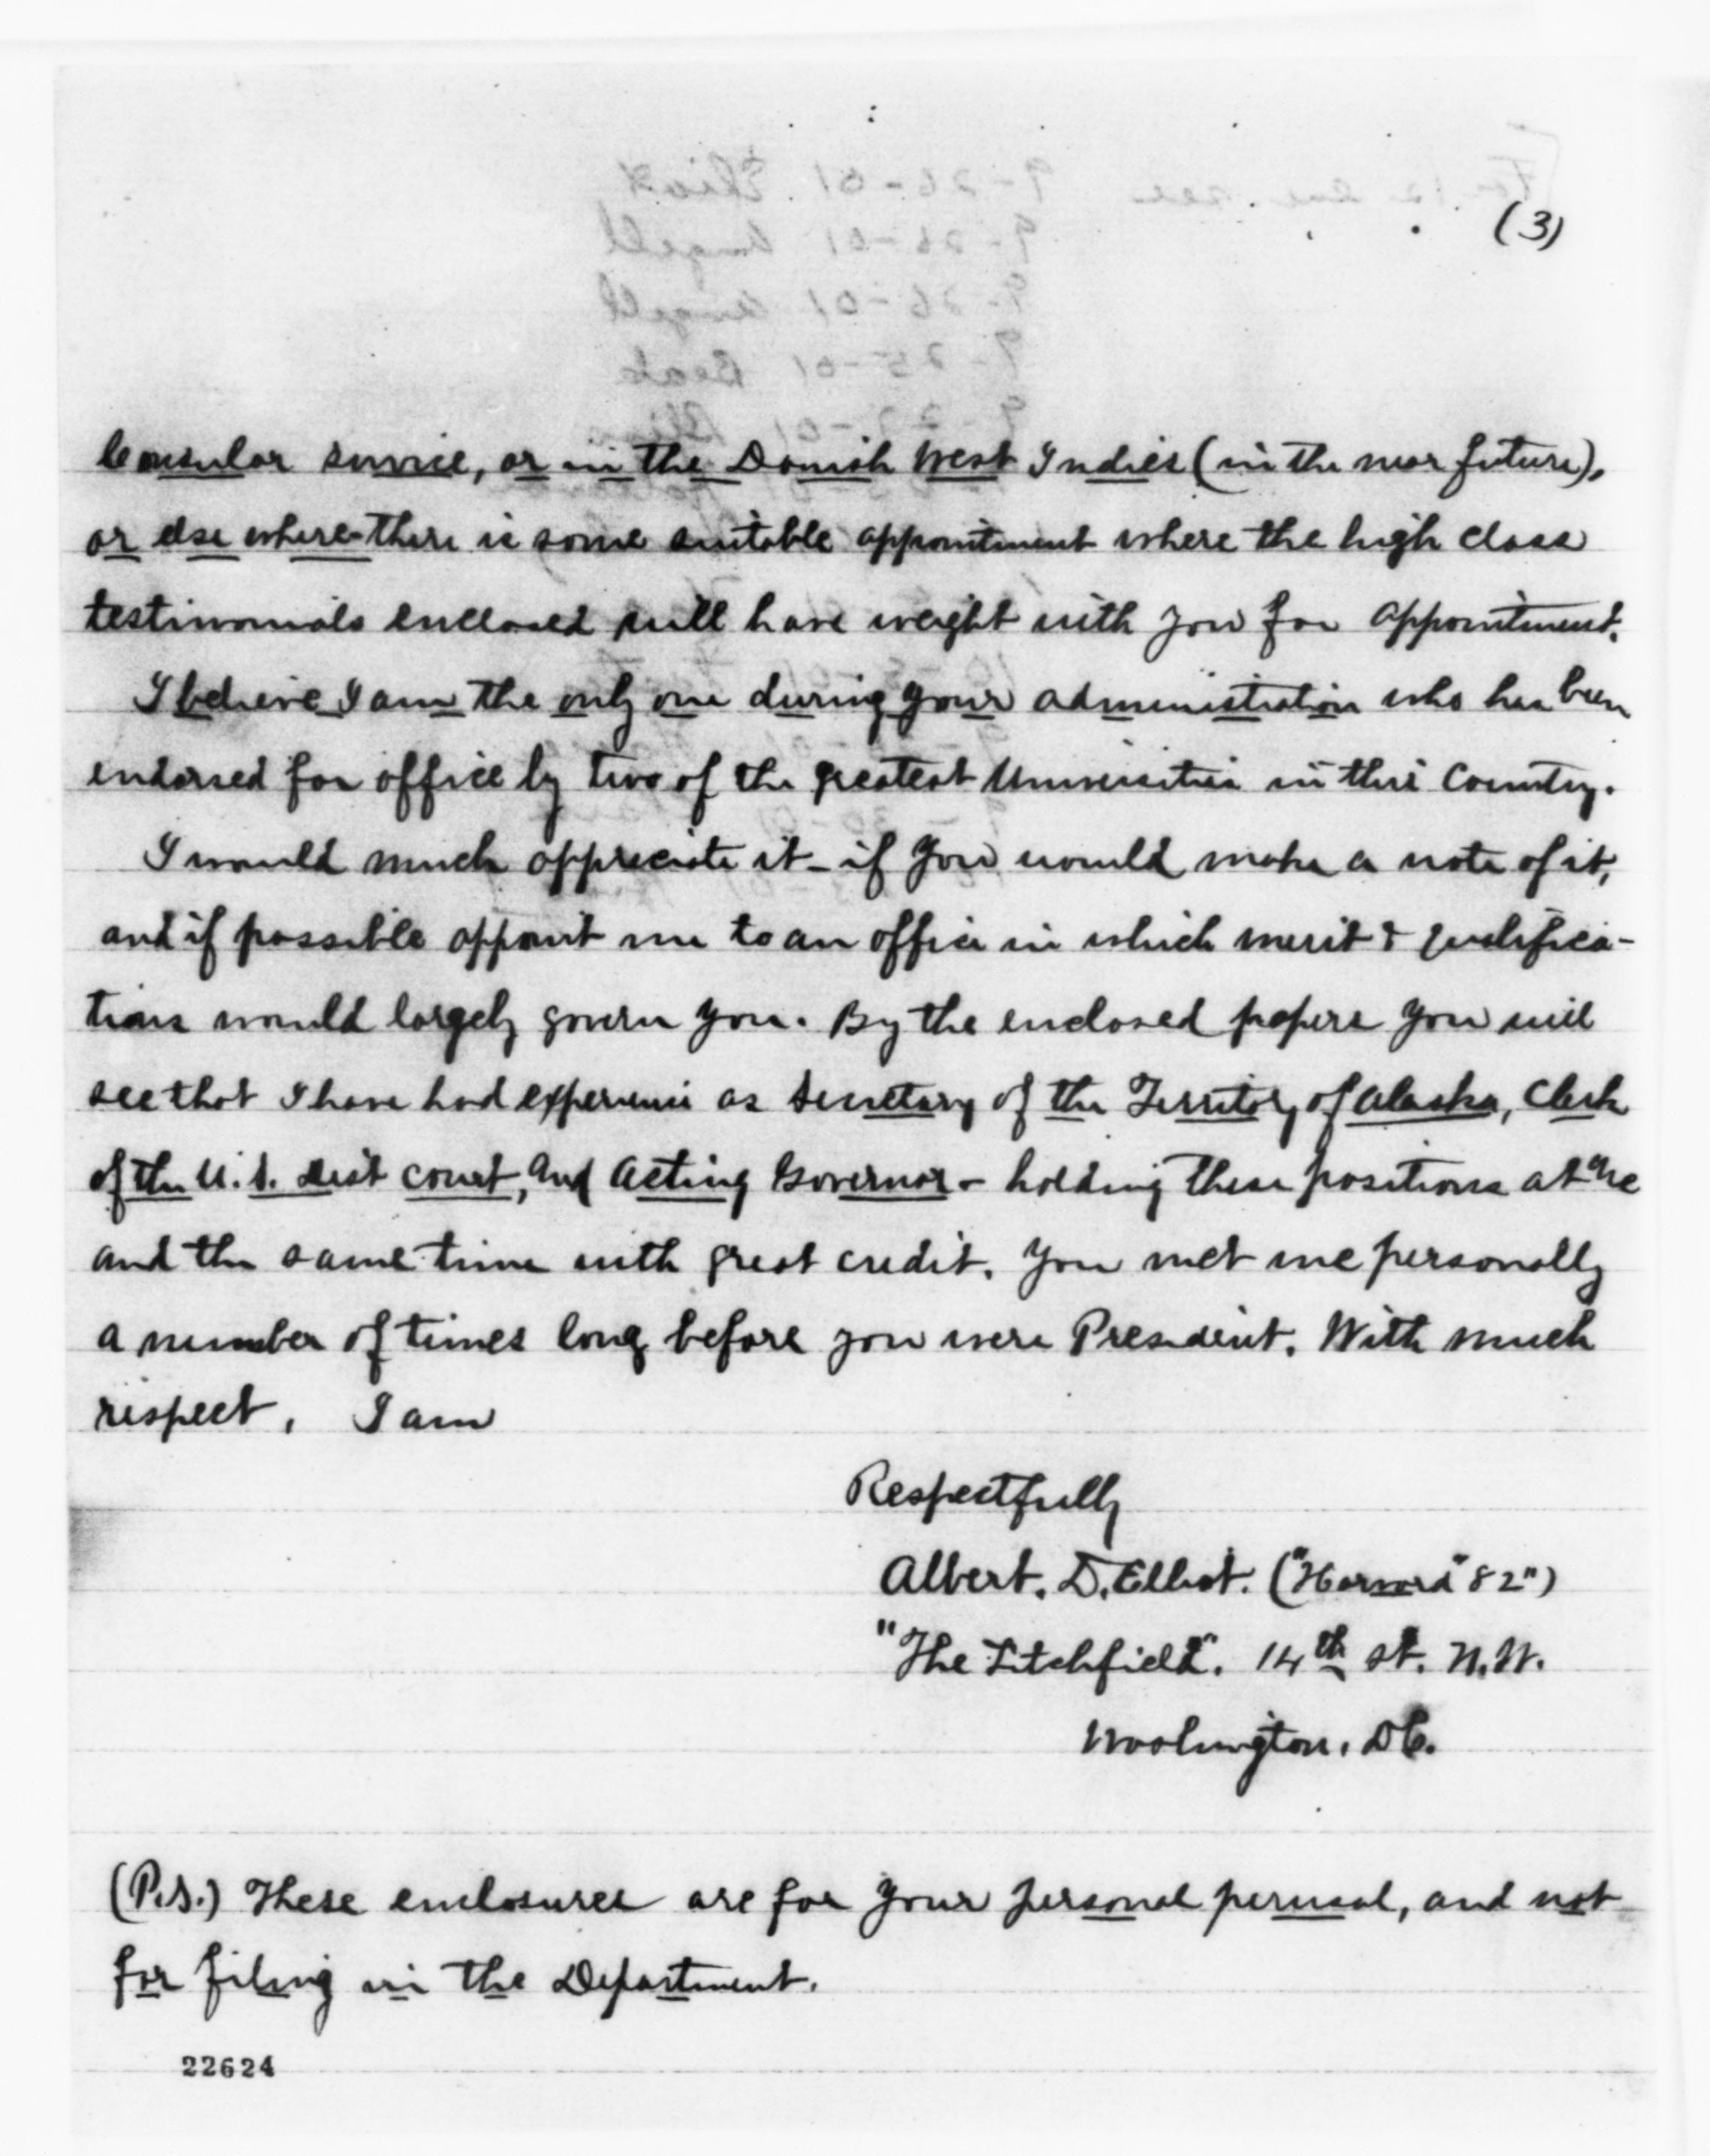 (3)
Consular service, or in the Danish West Indies (in the near future),
or else where there is some suitable appointment where the high class
testimonials enclosed will have weight with you for appointment.
I believe I am the only one during your administration who has been
endorsed for office by two of the greatest Universities in this Country.
I would much appreciate it - if you would make a note of it,
and if possible appoint me to an office in which merit & qualifica-
tions would largely govern you. By the enclosed papers you will
see that I have had experience as Secretary of the Territory of Alaska, Clerk
of the U.S. Dist Court, and Acting Governor - holding these positions at one
and the same time with great credit. You met me personally
a number of times long before you were President. With much
respect, I am
Respectfully
Albert. D. Elliot. ("Harvard" 82")
"The Litchfield". 14th St. N.W.
Washington, DC.
(P.S.) These enclosures are for your personal perusal, and not
for filing in the Department.
22624